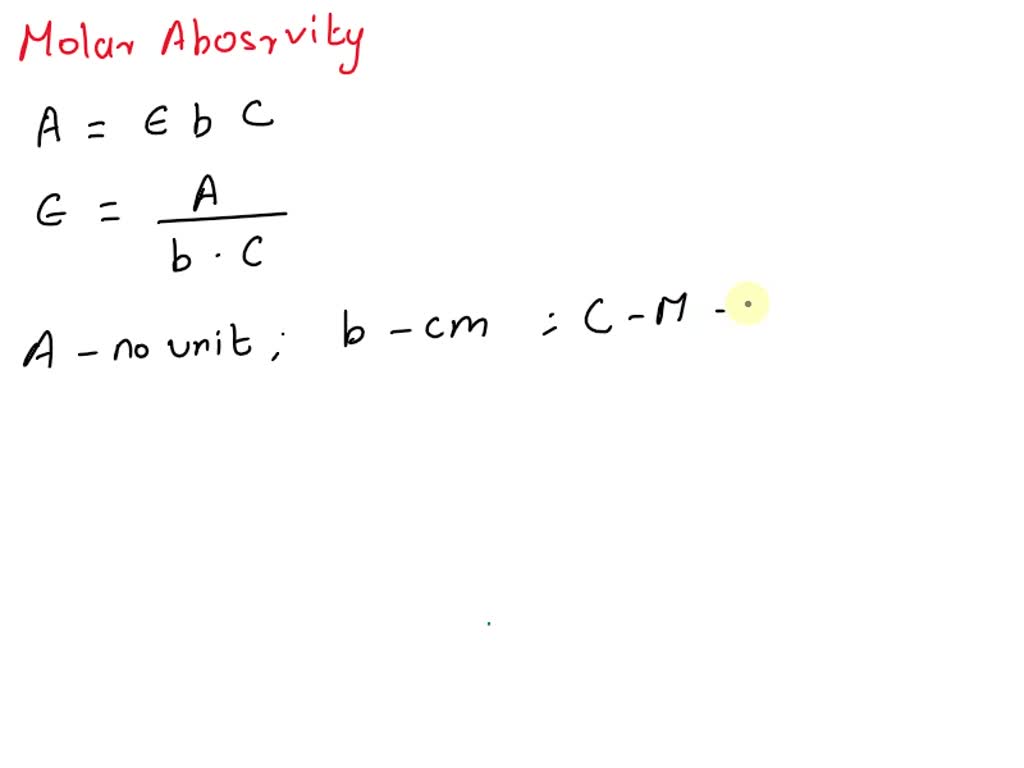 Molar Abosrvity
A = ϵ b C
ϵ = A / b · C
A - no unit ; b - cm ; C - M -